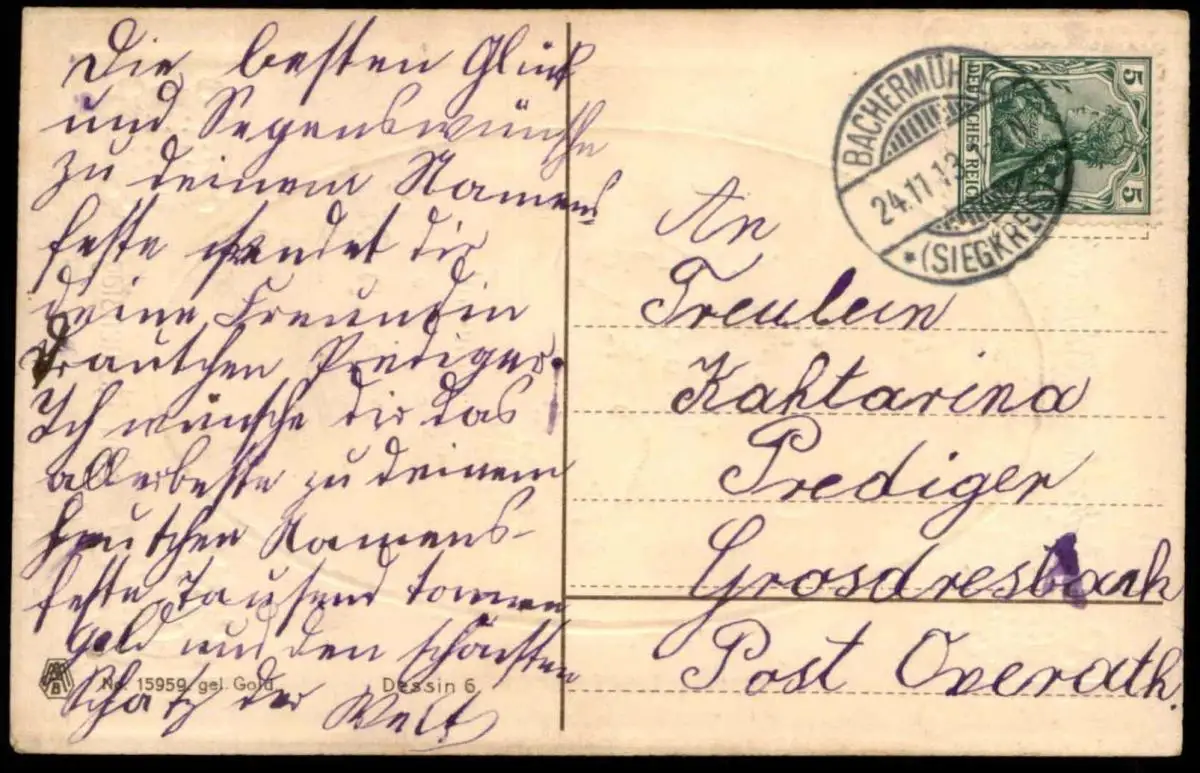 Die besten Glück
und Segenswünsche
zu deinem Namens
feste sendet dir
deine Freundin
Prediger.
Ich wünsche dir das
allerbeste zu deinem
heutigen Namens-
feste Tausend tonnen
Geld und den schönsten
Schatz der Welt
No. 15959. gel. Gold.
Dessin 6.
BACHERMÜH
24.11.13.
*(SIEGKREIS
DEUTSCHES REICH
5
5
An
Freulein
Kahtarina
Prediger
Grosdresbach
Post Overath.